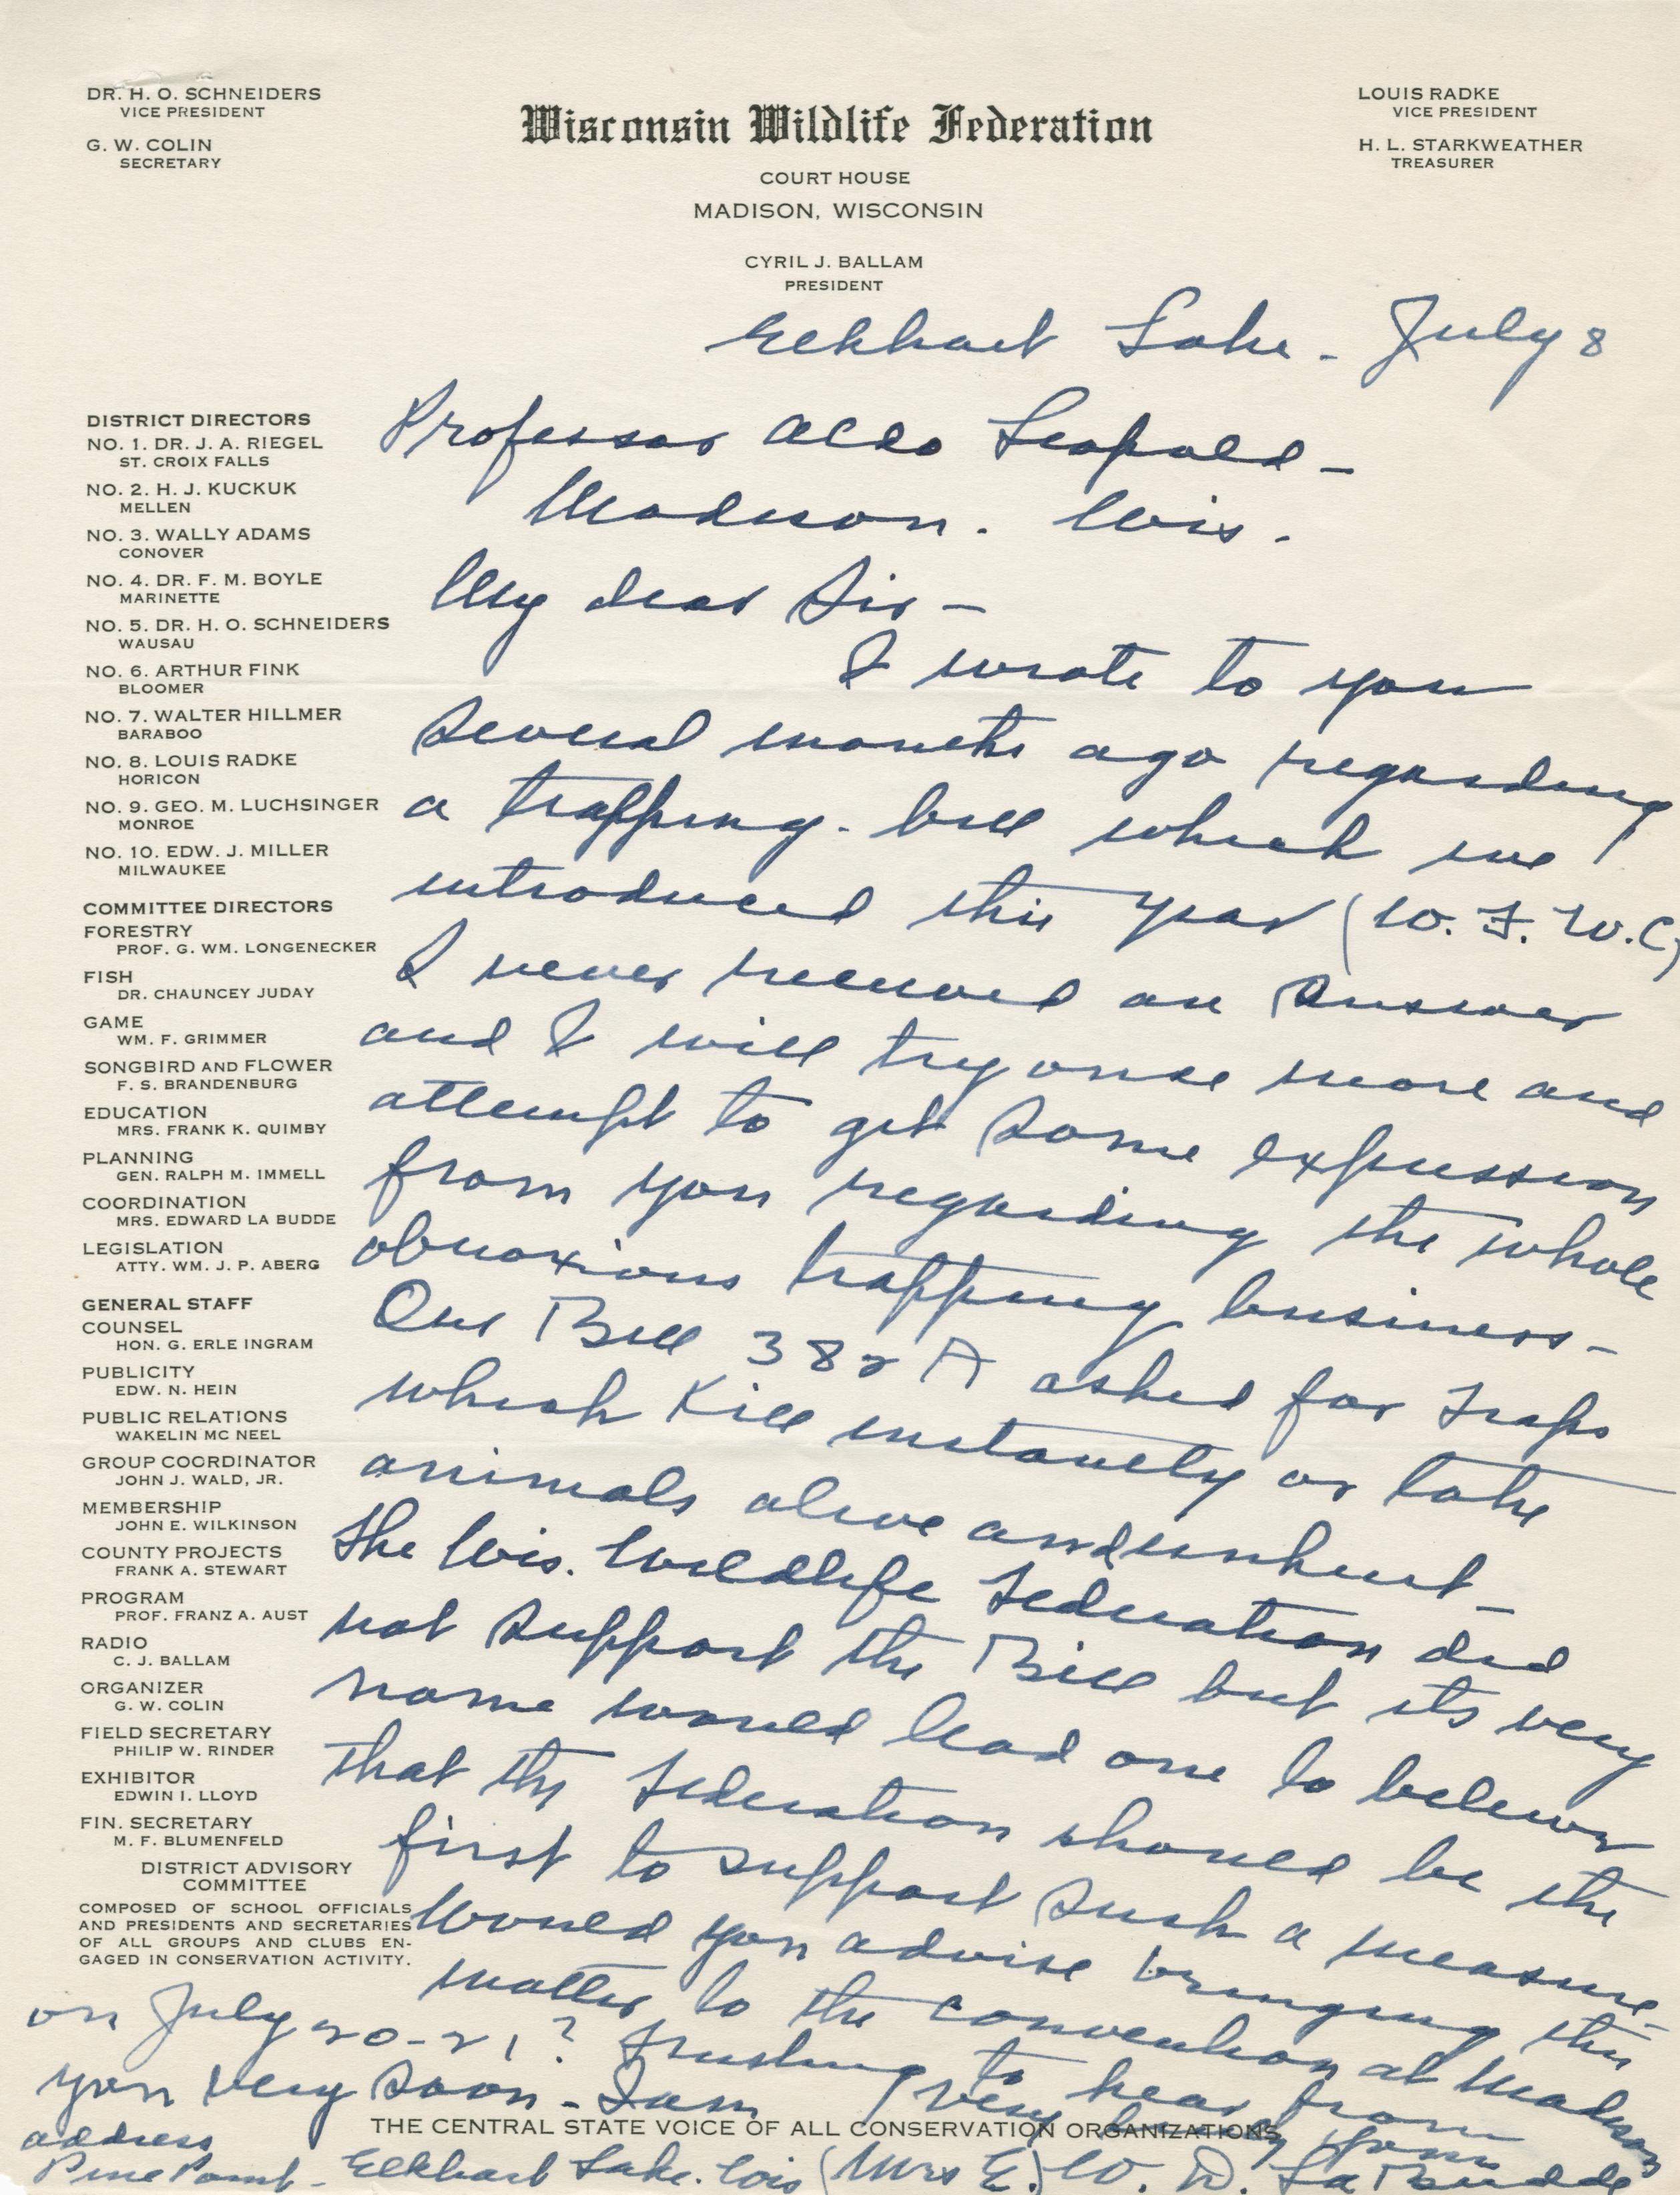 DR. H. O. SCHNEIDERS
VICE PRESIDENT
G. W. COLIN
SECRETARY
Wisconsin Wildlife Federation
COURT HOUSE
MADISON, WISCONSIN
CYRIL J. BALLAM
PRESIDENT
LOUIS RADKE
VICE PRESIDENT
H. L. STARKWEATHER
TREASURER
DISTRICT DIRECTORS
NO. 1. DR. J. A. RIEGEL
ST. CROIX FALLS
NO. 2. H. J. KUCKUK
MELLEN
NO. 3. WALLY ADAMS
CONOVER
NO. 4. DR. F. M. BOYLE
MARINETTE
NO. 5. DR. H. O. SCHNEIDERS
WAUSAU
NO. 6. ARTHUR FINK
BLOOMER
NO. 7. WALTER HILLMER
BARABOO
NO. 8. LOUIS RADKE
HORICON
NO. 9. GEO. M. LUCHSINGER
MONROE
NO. 10. EDW. J. MILLER
MILWAUKEE
COMMITTEE DIRECTORS
FORESTRY
PROF. G. WM. LONGENECKER
FISH
DR. CHAUNCEY JUDAY
GAME
WM. F. GRIMMER
SONGBIRD AND FLOWER
F. S. BRANDENBURG
EDUCATION
MRS. FRANK K. QUIMBY
PLANNING
GEN. RALPH M. IMMELL
COORDINATION
MRS. EDWARD LA BUDDE
LEGISLATION
ATTY. WM. J. P. ABERG
GENERAL STAFF
COUNSEL
HON. G. ERLE INGRAM
PUBLICITY
EDW. N. HEIN
PUBLIC RELATIONS
WAKELIN MC NEEL
GROUP COORDINATOR
JOHN J. WALD, JR.
MEMBERSHIP
JOHN E. WILKINSON
COUNTY PROJECTS
FRANK A. STEWART
PROGRAM
PROF. FRANZ A. AUST
RADIO
C. J. BALLAM
ORGANIZER
G. W. COLIN
FIELD SECRETARY
PHILIP W. RINDER
EXHIBITOR
EDWIN I. LLOYD
FIN. SECRETARY
M. F. BLUMENFELD
DISTRICT ADVISORY
COMMITTEE
COMPOSED OF SCHOOL OFFICIALS
AND PRESIDENTS AND SECRETARIES
OF ALL GROUPS AND CLUBS EN-
GAGED IN CONSERVATION ACTIVITY.
Elkhart Lake - July 8
Professor Aldo Leopold -
Madison. Wis.
My dear Sir -
I wrote to you
several months ago regarding
a trapping. bill which we
introduced this year (W. F. W. C)
I never received an answer
and I will try once more and
attempt to get some expression
from you regarding the whole
obnoxious trapping business -
Our Bill 382 A asked for traps
which Kill instantly or take
animals alive and unhurt -
The Wis. Wildlife Federation did
not support the Bill but its very
name would lead one to believe
that the Federation should be the
first to support such a measure -
Would you advise bringing this
matter to the convention at Madison
on July 20-21? Trusting to hear from
you very soon - I am
Very truly yours
THE CENTRAL STATE VOICE OF ALL CONSERVATION ORGANIZATIONS
(Mrs E.) W. D. La Budde
address
Pine Point - Elkhart Lake. Wis